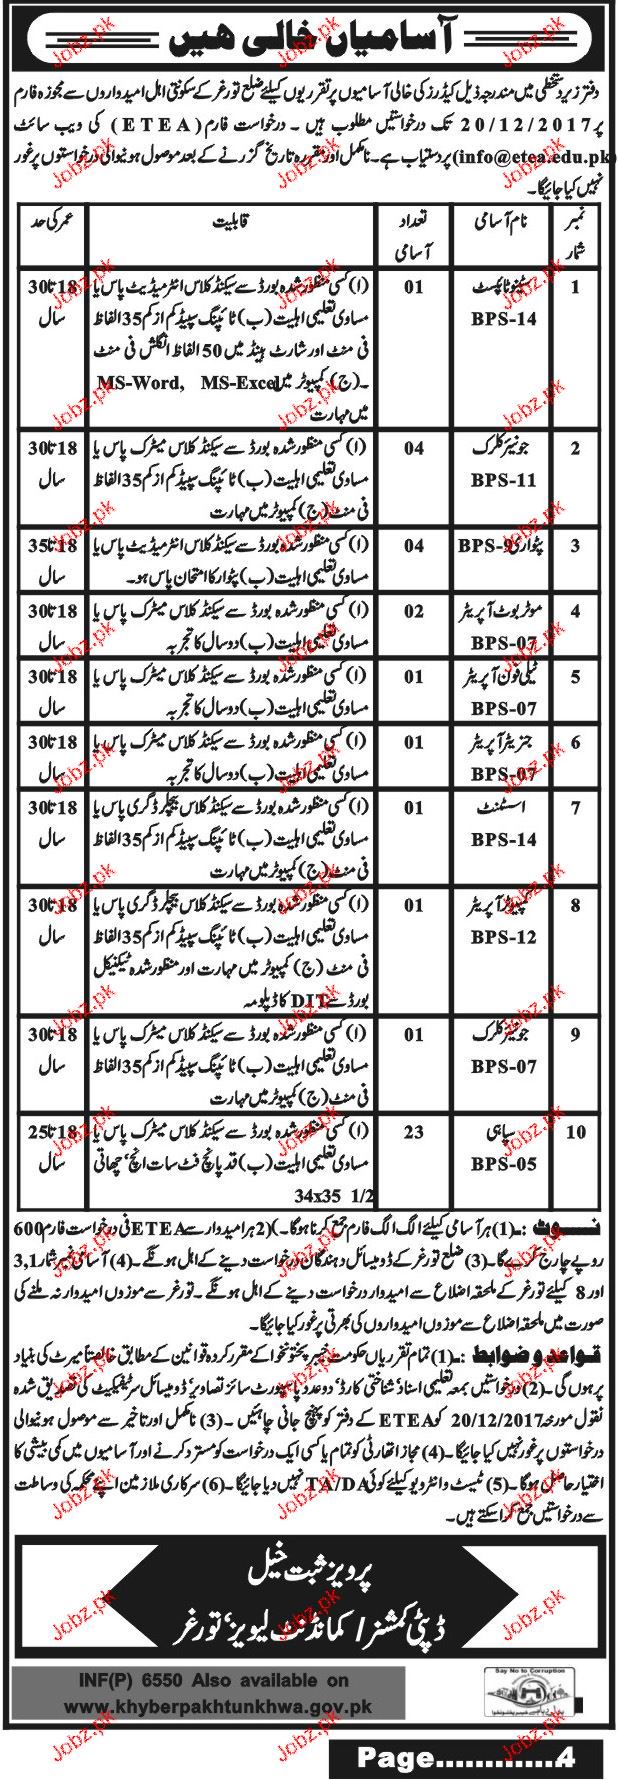 آسامیاں خالی ہیں
دفتر زیر دستخطی میں مندرجہ ذیل کیڈرز کی خالی آسامیوں پر تقرریوں کیلئے ضلع تورغر کے سکونتی اہل امیدواروں سے مجوزہ فارم
پر 20/12/2017 تک درخواستیں مطلوب ہیں ۔ درخواست فارم (ETEA) کی ویب سائٹ
(info@etea.edu.pk) پر دستیاب ہے۔ نامکمل اور مقررہ تاریخ گزرنے کے بعد موصول ہونیوالی درخواستوں پر غور
نہیں کیا جائیگا۔
نمبر شمار | نام آسامی | تعداد آسامی | قابلیت | عمر کی حد
1 | سٹینو ٹائپسٹ BPS-14 | 01 | (ا) کسی منظور شدہ بورڈ سے سیکنڈ کلاس انٹرمیڈیٹ پاس یا | 18 تا 30 سال
مساوی تعلیمی اہلیت (ب) ٹائپنگ سپیڈ کم از کم 35 الفاظ
فی منٹ اور شارٹ ہینڈ میں 50 الفاظ انگلش فی منٹ
۔ (ج) کمپیوٹر میں MS-Word, MS-Excel
میں مہارت
2 | جونیئر کلرک BPS-11 | 04 | (ا) کسی منظور شدہ بورڈ سے سیکنڈ کلاس میٹرک پاس یا | 18 تا 30 سال
مساوی تعلیمی اہلیت (ب) ٹائپنگ سپیڈ کم از کم 35 الفاظ
فی منٹ (ج) کمپیوٹر میں مہارت
3 | پٹواری BPS-9 | 04 | (ا) کسی منظور شدہ بورڈ سے سیکنڈ کلاس انٹرمیڈیٹ پاس یا | 18 تا 35 سال
مساوی تعلیمی اہلیت (ب) پٹوار کا امتحان پاس ہو۔
4 | موٹر بوٹ آپریٹر BPS-07 | 02 | (ا) کسی منظور شدہ بورڈ سے سیکنڈ کلاس میٹرک پاس یا | 18 تا 30 سال
مساوی تعلیمی اہلیت (ب) دو سال کا تجربہ
5 | ٹیلی فون آپریٹر BPS-07 | 01 | (ا) کسی منظور شدہ بورڈ سے سیکنڈ کلاس میٹرک پاس یا | 18 تا 30 سال
مساوی تعلیمی اہلیت (ب) دو سال کا تجربہ
6 | جنریٹر آپریٹر BPS-07 | 01 | (ا) کسی منظور شدہ بورڈ سے سیکنڈ کلاس میٹرک پاس یا | 18 تا 30 سال
مساوی تعلیمی اہلیت (ب) دو سال کا تجربہ
7 | اسسٹنٹ BPS-14 | 01 | (ا) کسی منظور شدہ بورڈ سے سیکنڈ کلاس بیچلر ڈگری پاس یا | 18 تا 30 سال
مساوی تعلیمی اہلیت (ب) ٹائپنگ سپیڈ کم از کم 35 الفاظ
فی منٹ (ج) کمپیوٹر میں مہارت
8 | کمپیوٹر آپریٹر BPS-12 | 01 | (ا) کسی منظور شدہ بورڈ سے سیکنڈ کلاس بیچلر ڈگری پاس یا | 18 تا 30 سال
مساوی تعلیمی اہلیت (ب) ٹائپنگ سپیڈ کم از کم 35 الفاظ
فی منٹ (ج) کمپیوٹر میں مہارت اور منظور شدہ ٹیکنیکل
بورڈ سے DIT کا ڈپلومہ
9 | جونیئر کلرک BPS-07 | 01 | (ا) کسی منظور شدہ بورڈ سے سیکنڈ کلاس میٹرک پاس یا | 18 تا 30 سال
مساوی تعلیمی اہلیت (ب) ٹائپنگ سپیڈ کم از کم 35 الفاظ
فی منٹ (ج) کمپیوٹر میں مہارت
10 | سپاہی BPS-05 | 23 | (ا) کسی منظور شدہ بورڈ سے سیکنڈ کلاس میٹرک پاس یا | 18 تا 25 سال
مساوی تعلیمی اہلیت (ب) قد پانچ فٹ سات انچ، چھاتی
34x35 1/2
نوٹ :۔ (1) ہر آسامی کیلئے الگ الگ فارم جمع کرنا ہوگا۔ (2) ہر امیدوار سے ETEA فی درخواست فارم 600
روپے چارج کرے گا۔ (3) ضلع تورغر کے ڈومیسائل دہندگان درخواست دینے کے اہل ہونگے۔ (4) آسامی نمبر شمار 3,1
اور 8 کیلئے تورغر کے ملحقہ اضلاع سے امیدوار درخواست دینے کے اہل ہونگے۔ تورغر سے موزوں امیدوار نہ ملنے کی
صورت میں ملحقہ اضلاع سے موزوں امیدواروں کی بھرتی پر غور کیا جائیگا۔
قواعد و ضوابط :۔ (1) تمام تقرریاں حکومت خیبر پختونخوا کے مقرر کردہ قوانین کے مطابق خالصتاً میرٹ کی بنیاد
پر ہوں گی۔ (2) درخواستیں بمعہ تعلیمی اسناد، شناختی کارڈ، دو عدد پاسپورٹ سائز تصاویر، ڈومیسائل سرٹیفکیٹ کی تصدیق شدہ
نقول مورخہ 20/12/2017 کو ETEA کے دفتر کو پہنچ جانی چاہئیں۔ (3) نامکمل اور تاخیر سے موصول ہونیوالی
درخواستوں پر غور نہیں کیا جائیگا۔ (4) مجاز اتھارٹی کو تمام یا کسی ایک درخواست کو مسترد کرنے اور آسامیوں میں کمی بیشی کا
اختیار حاصل ہوگا۔ (5) ٹیسٹ و انٹرویو کیلئے کوئی TA/DA نہیں دیا جائیگا۔ (6) سرکاری ملازمین اپنے محکمہ کی وساطت
سے درخواستیں جمع کرا سکتے ہیں۔
پرویز ثبت خیل
ڈپٹی کمشنر / کمانڈنٹ لیویز، تورغر
INF(P) 6550 Also available on
www.khyberpakhtunkhwa.gov.pk
Say No to Corruption
Page............4
Jobz.pk